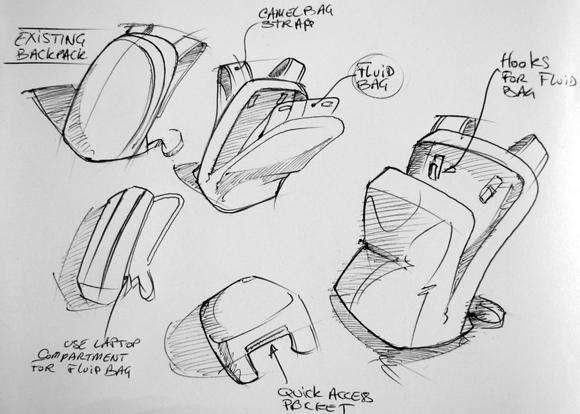 EXISTING
BACKPACK
CAMELBAG
STRAP
FLUID
BAG
HOOKS
FOR FLUID
BAG
USE LAPTOP
COMPARTMENT
FOR FLUID BAG
QUICK ACCESS
POCKET